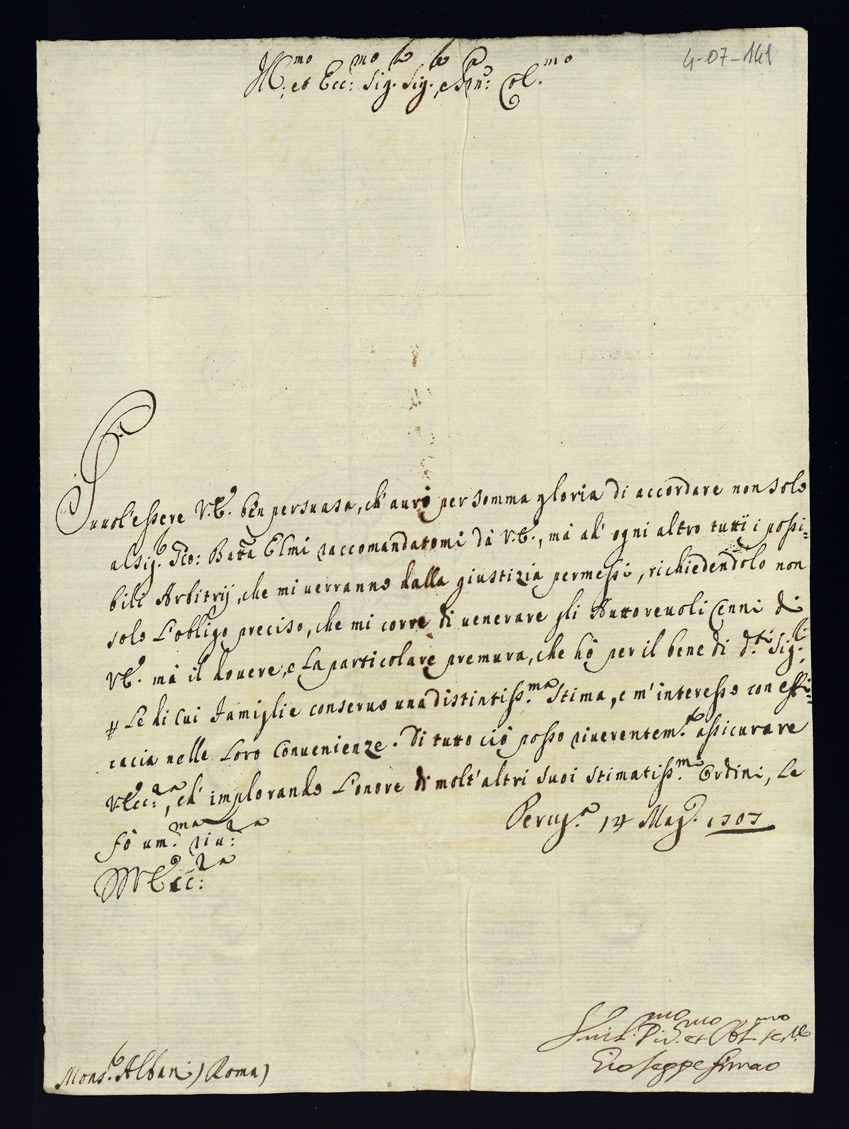 4-07-141
Ill.mo et Ecc:mo Sig.r Sig.r e Pron: Col.mo
Puol'essere V.E. ben persuasa, ch'aurò per somma gloria di accordare non solo
al Sig.r Gio: Batta Elmi raccomandatomi dà V.E., mà ad' ogni altro tutti i possi=
bili Arbitrij, che mi uerranno dalla giustizia permessi, richiedendolo non
solo l'obligo preciso, che mi corre di uenerare gli Auttoreuoli Cenni di
V.E. mà il douere, e la particolare premura, che hò per il bene di d.ti Sig.ri
Le di cui Famiglie conseruo una distintiss.ma Stima, e m'interesso con effi=
cacia nelle loro Conuenienze. Di tutto ciò posso riuerentem.te assicurare
V.Ecc:za, ed' implorando l'onore di molt'altri suoi stimatiss.mi Ordini, le
fò um.ma riu:za
Perug.a 14 Mag.o 1707
D V.Ecc:za
Mons.r Albani (Roma)
Giuseppe Firrao